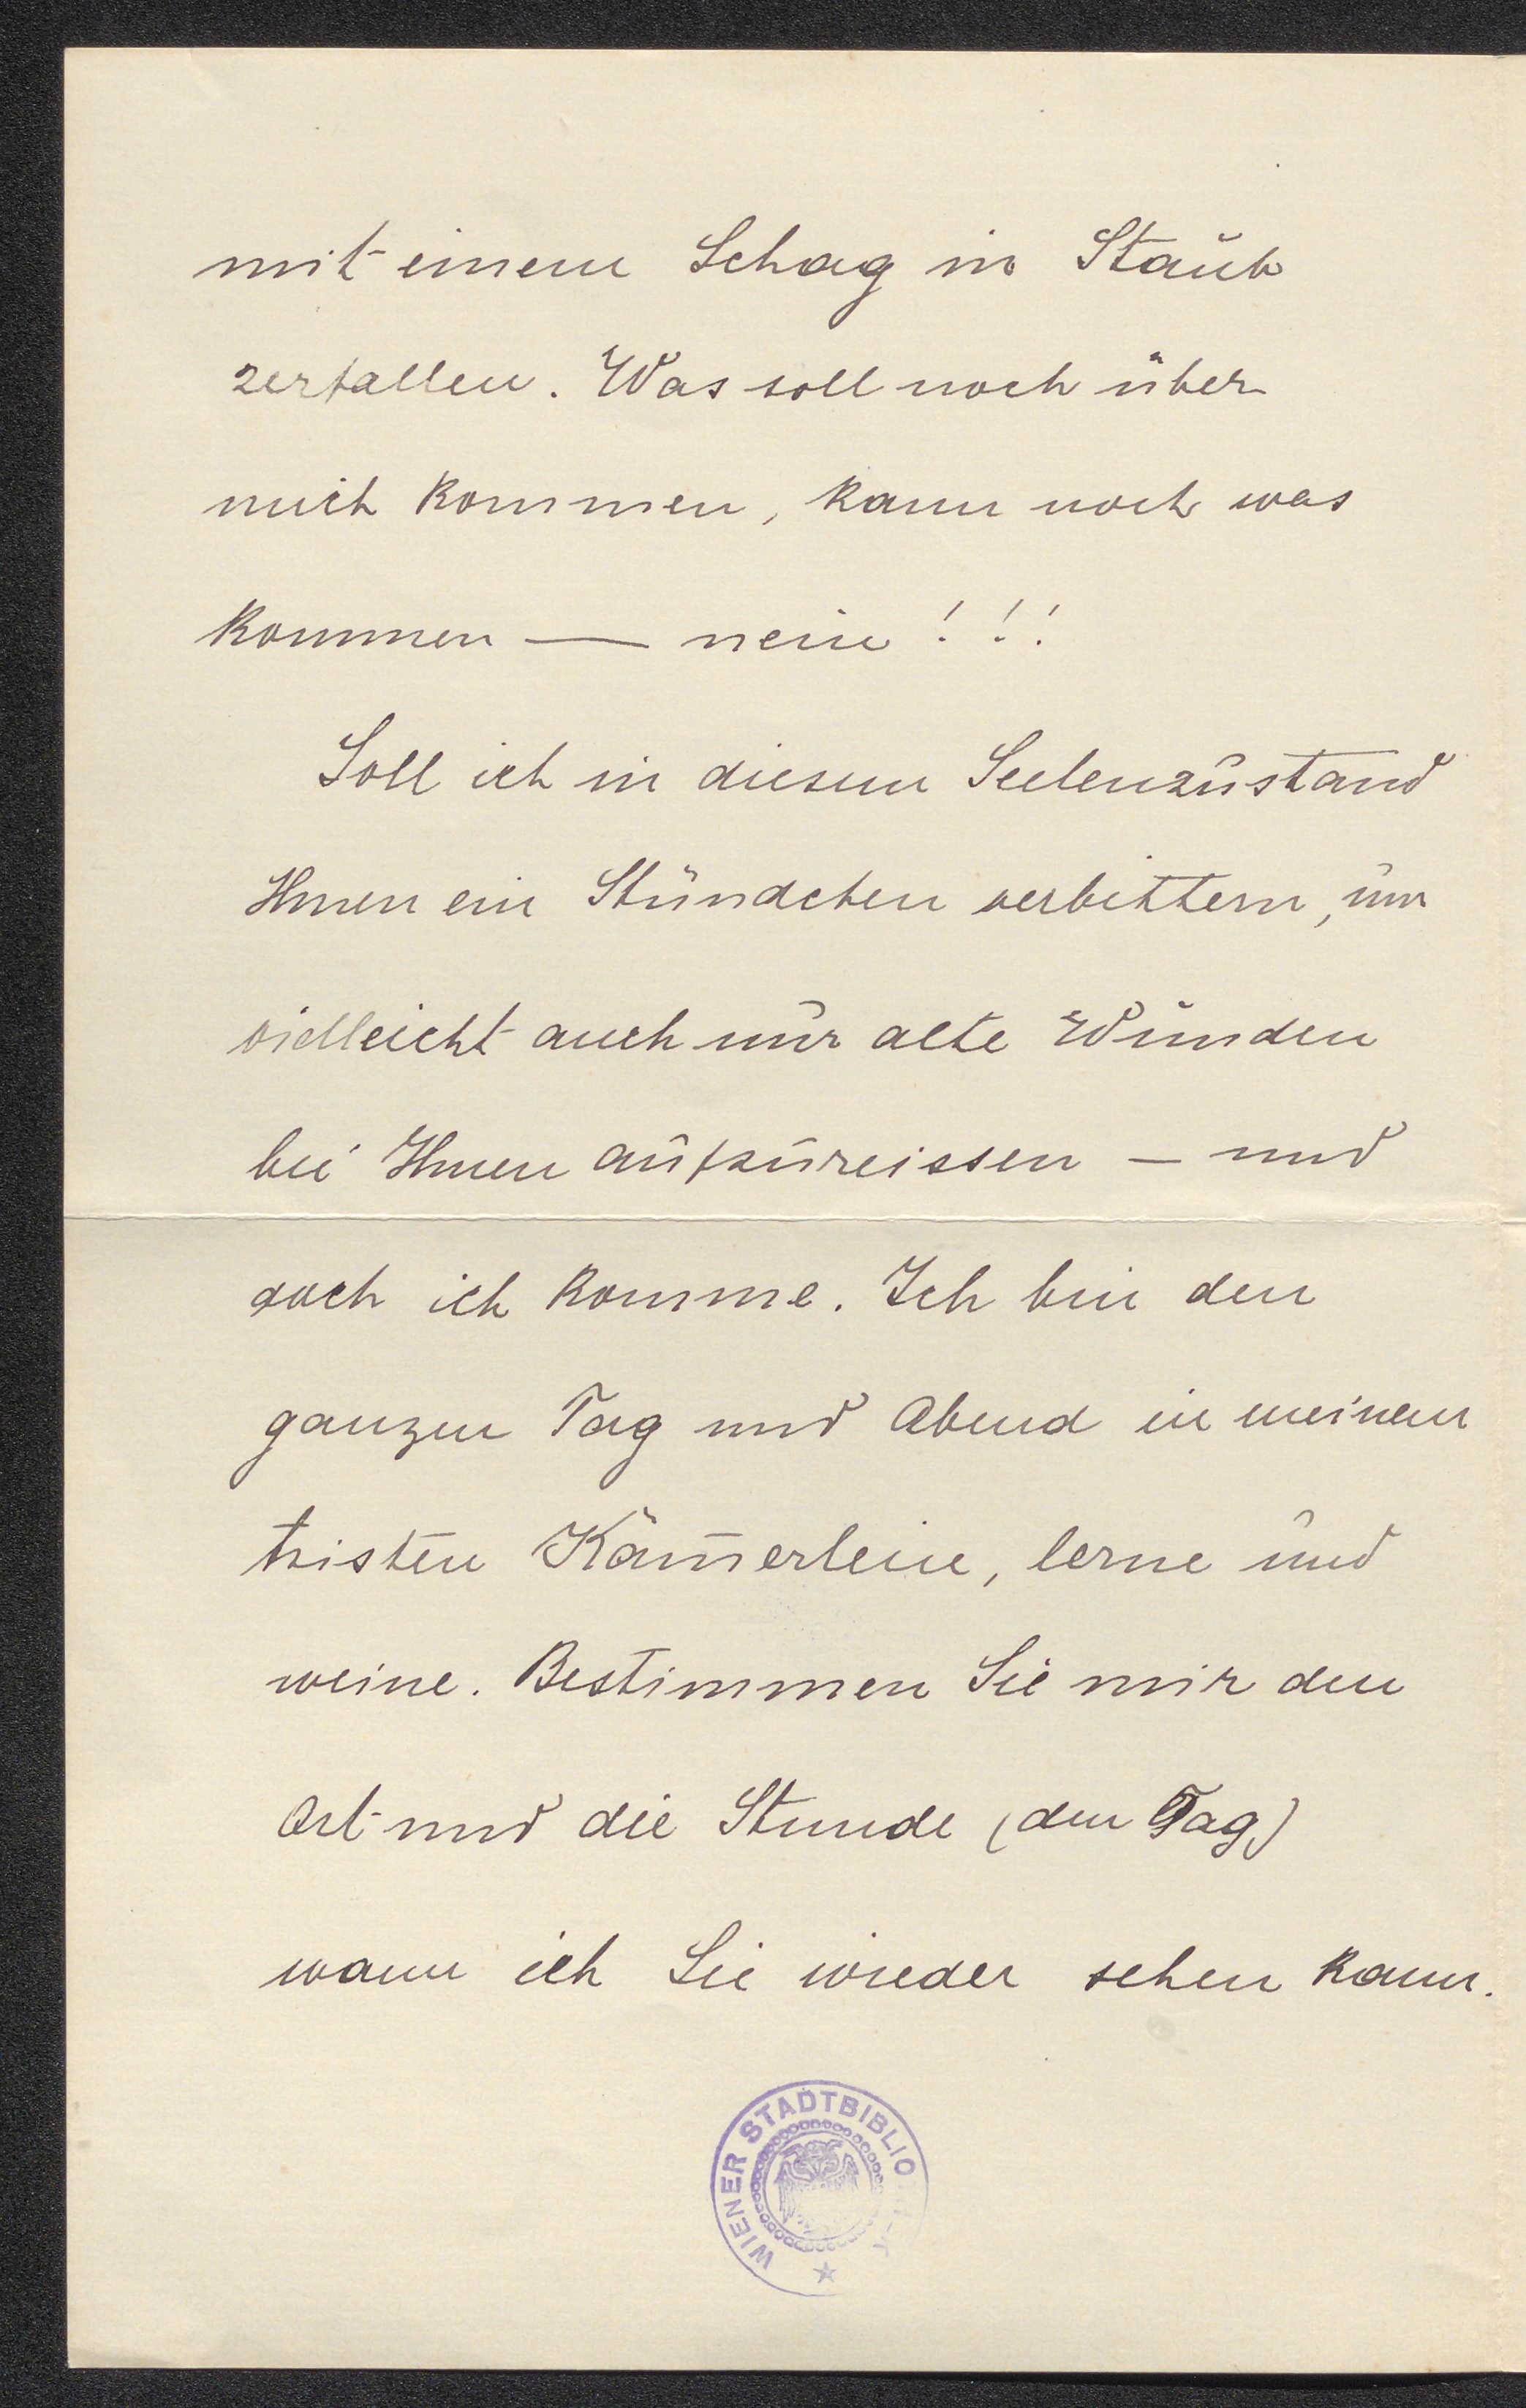 mit einem Schag in Staub
zerfallen. Was soll noch über
mich kommen, kann noch was
kommen — nein!!!
Soll ich in diesem Seelenzustand
Ihnen ein Stündchen verbittern, um
vielleicht auch nur alte Wunden
bei Ihnen aufzureissen – und
doch ich komme. Ich bin den
ganzen Tag und Abend in meinem
tristen Kam̄erlein, lerne und
weine. Bestimmen Sie mir den
Ort und die Stunde (den Tag)
wann ich Sie wieder sehen kann.
WIENER STADTBIBLIO